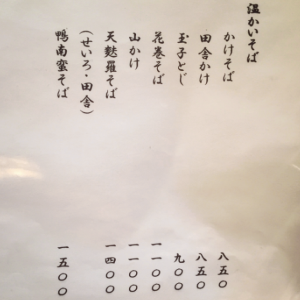 温かいそば
かけそば 八五〇
田舎かけ 八五〇
玉子とじ 九〇〇
花巻そば 一一〇〇
山かけ 一一〇〇
天麩羅そば 一四〇〇
(せいろ・田舎)
鴨南蛮そば 一五〇〇